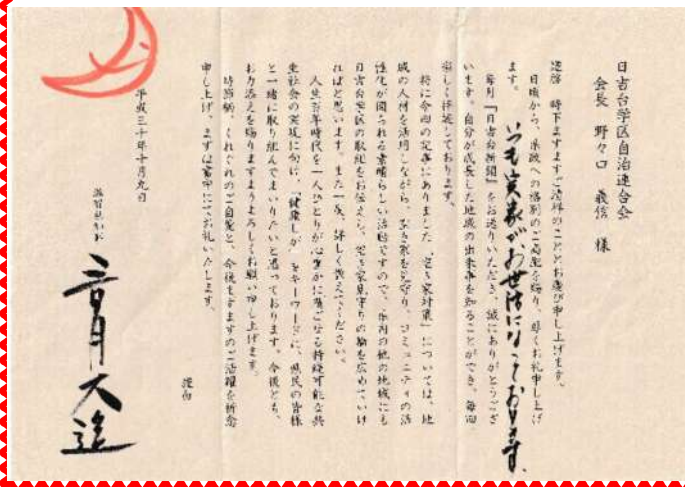 日吉台学区自治連合会
会長 野々口 義信 様
謹啓 時下ますますご清祥のこととお慶び申し上げます。
日頃から、県政への格別のご高配を賜り、厚くお礼申し上げ
ます。
いつも実家がお世話になっております。
毎月『日吉台新聞』をお送りいただき、誠にありがとうござ
います。自分が成長した地域の出来事を知ることができ、毎回
楽しく拝読しております。
特に今回の記事にありました「空き家対策」については、地
域の人材を活用しながら、空き家を見守り、コミュニティの活
性化が図られる素晴らしい活動ですので、県内の他の地域にも
日吉台学区の取組をお伝えし、空き家見守りの輪を広めていけ
ればと思います。また一度、詳しく教えてください。
人生百年時代を一人ひとりが心豊かに過ごせる持続可能な共
生社会の実現に向け、「健康しが」をキーワードに、県民の皆様
と一緒に取り組んでまいりたいと思っております。今後とも、
お力添えを賜りますようよろしくお願い申し上げます。
時節柄、くれぐれのご自愛と、今後ますますのご活躍を祈念
申し上げ、まずは書中にてお礼いたします。
謹白
平成三十年十月九日
滋賀県知事
三日月大造